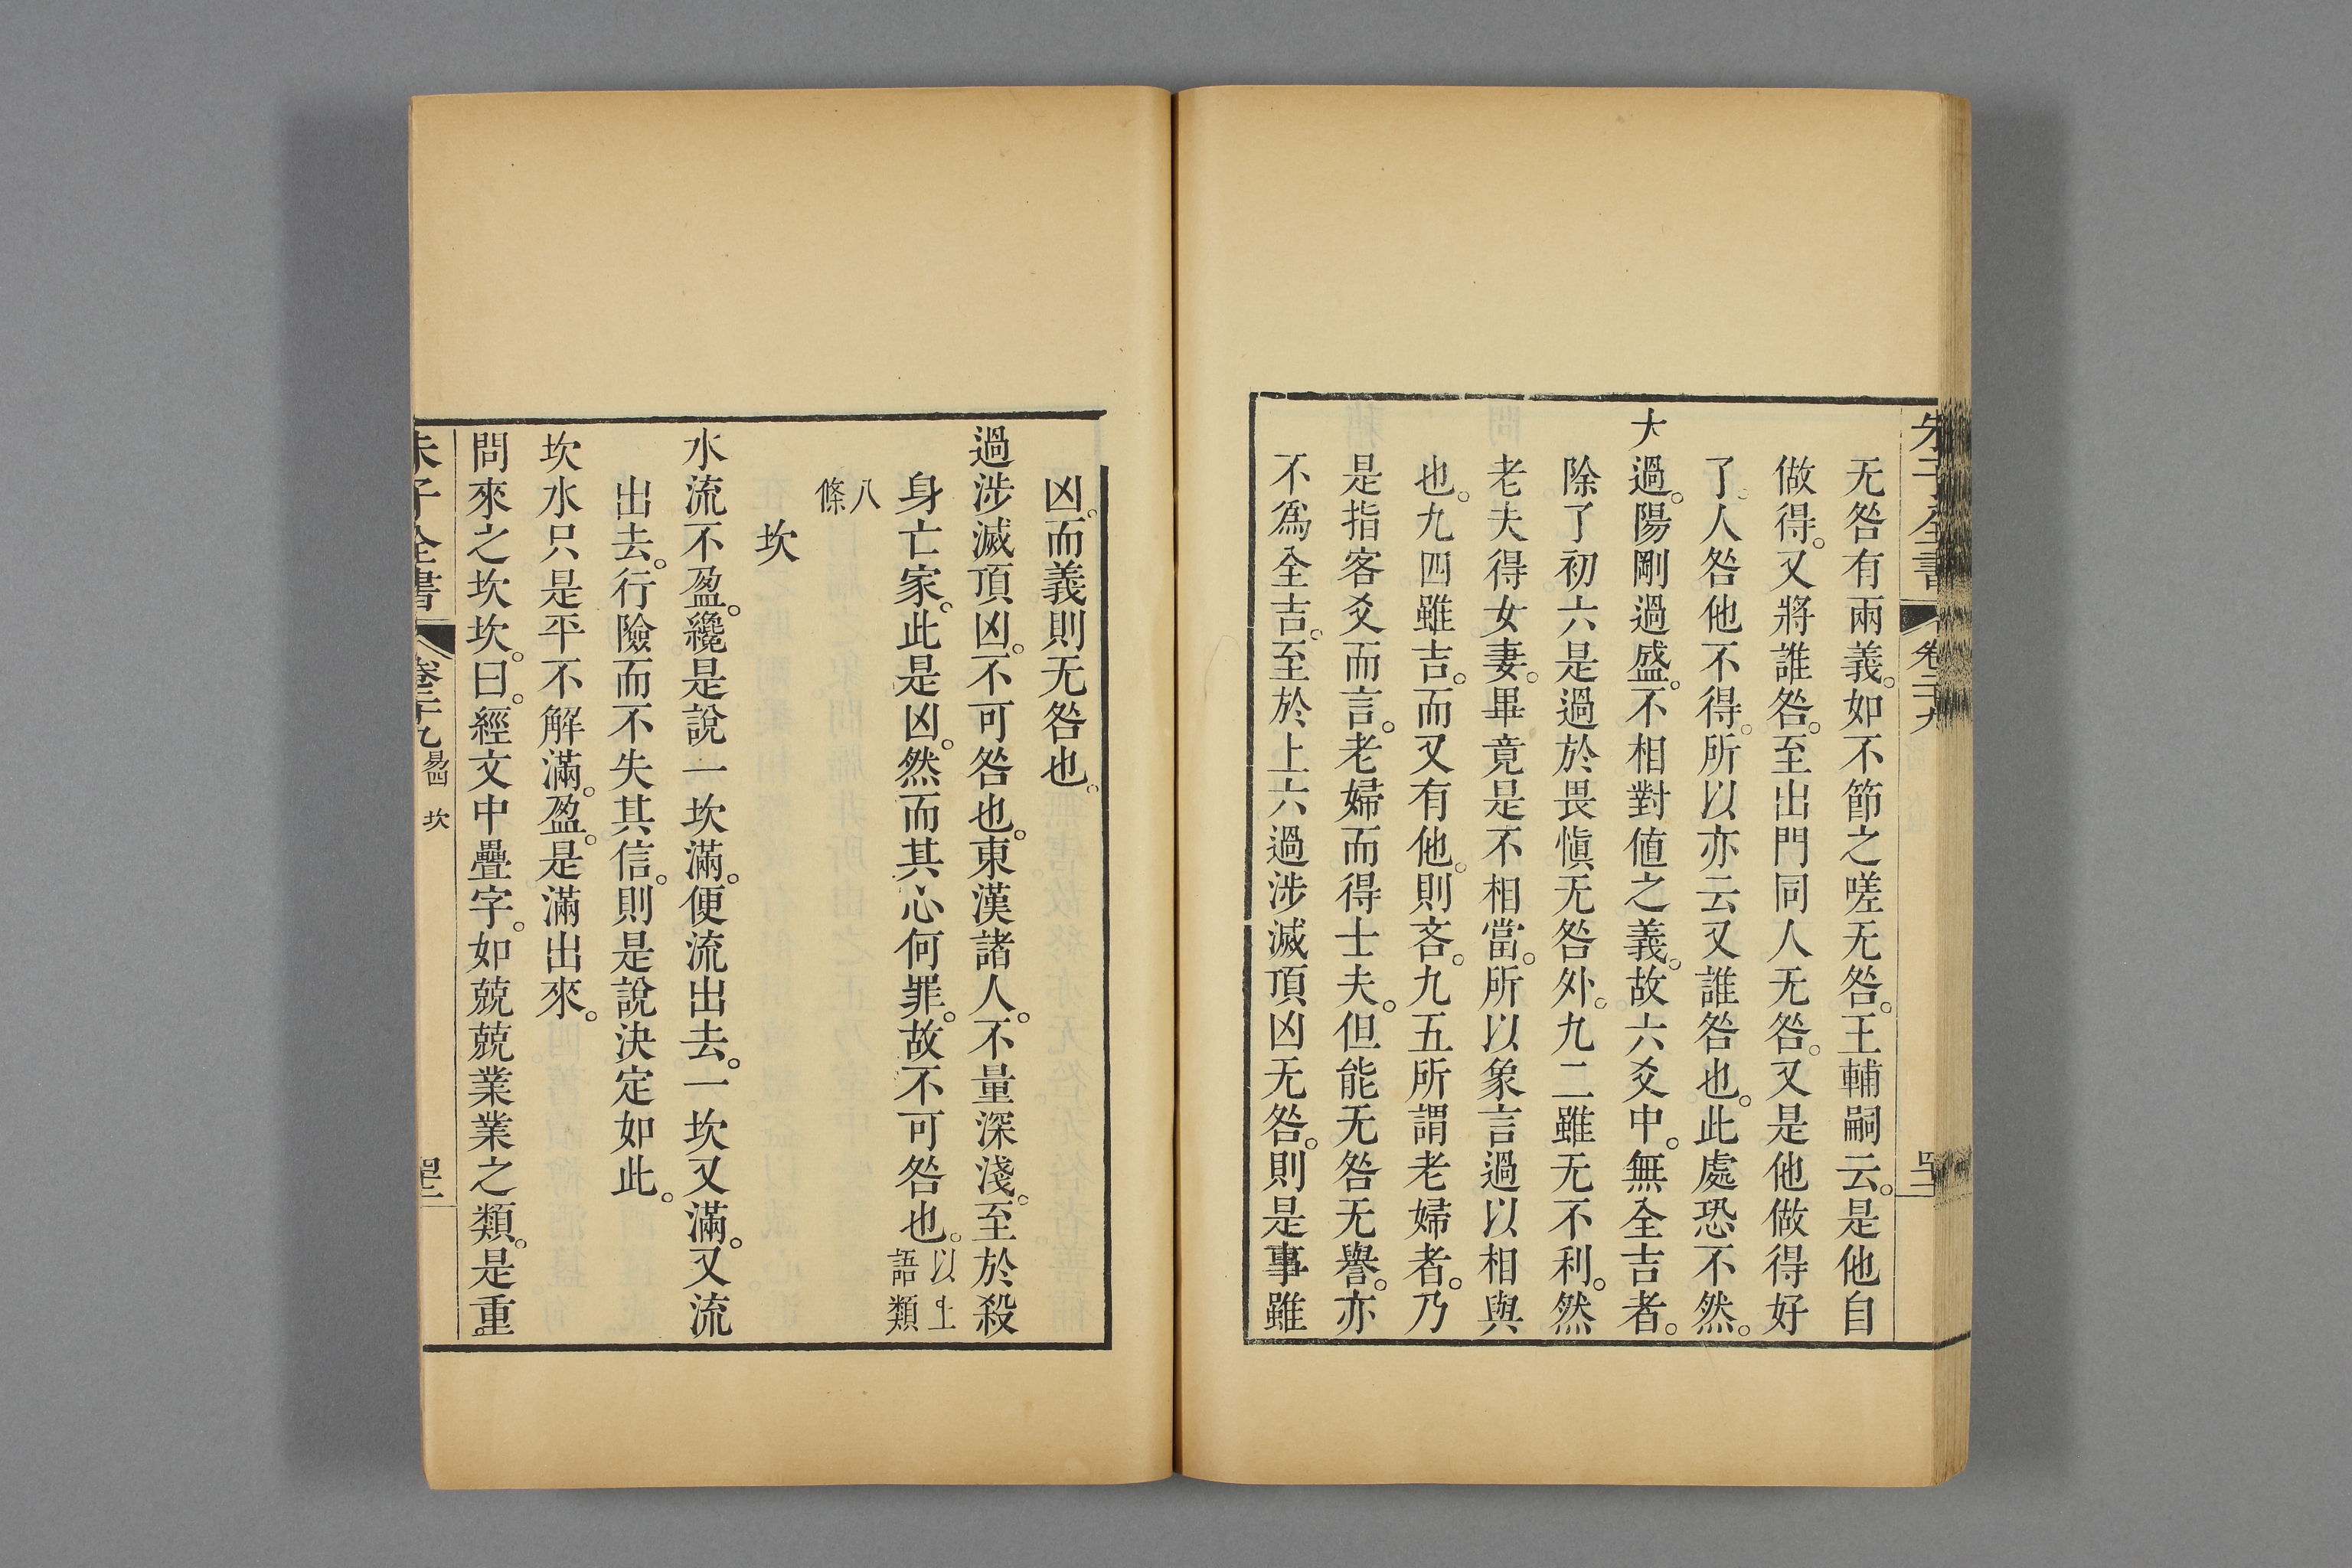 朱子全書 卷二十九
无咎有兩義。如不節之嗟无咎。王輔嗣云。是他自
做得。又將誰咎。至出門同人无咎。又是他做得好
了。人咎他不得。所以亦云又誰咎也。此處恐不然。
大過。陽剛過盛。不相對值之義。故六爻中。無全吉者。
除了初六是過於畏愼无咎外。九二雖无不利。然
老夫得女妻。畢竟是不相當。所以象言過以相與
也。九四雖吉。而又有他。則吝。九五所謂老婦者。乃
是指客爻而言。老婦而得士夫。但能无咎无譽。亦
不爲全吉。至於上六過涉滅頂凶无咎。則是事雖
凶。而義則无咎也。
過涉滅頂凶。不可咎也。東漢諸人。不量深淺。至於殺
身亡家。此是凶。然而其心何罪。故不可咎也。以上語類
八條
坎
水流不盈。纔是說一坎滿。便流出去。一坎又滿。又流
出去。行險而不失其信。則是說決定如此。
坎水只是平不解滿。盈。是滿出來。
問來之坎坎。曰。經文中疊字。如兢兢業業之類。是重
朱子全書 卷二十九 易四 坎